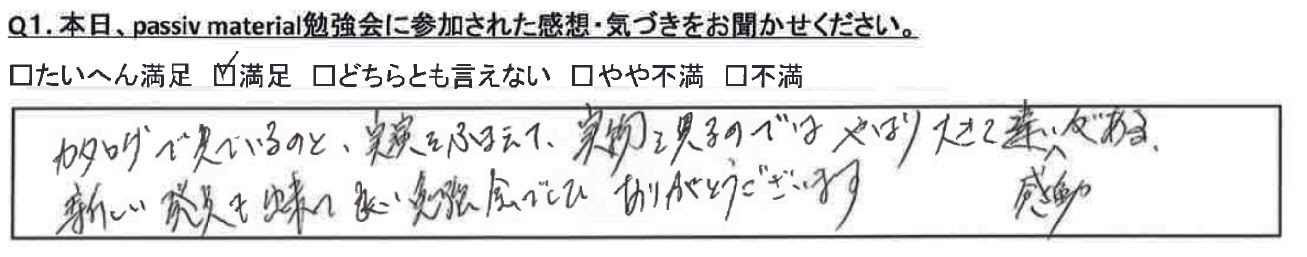 Q1. 本日、passiv material勉強会に参加された感想・気づきをお聞かせください。
□たいへん満足 ☑満足 □どちらとも言えない □やや不満 □不満
カタログで見ているのと、実演をふまえて、実物を見るのでは やはり大きく違いがある。
感動
新しい発見も出来て良い勉強会でした ありがとうございます